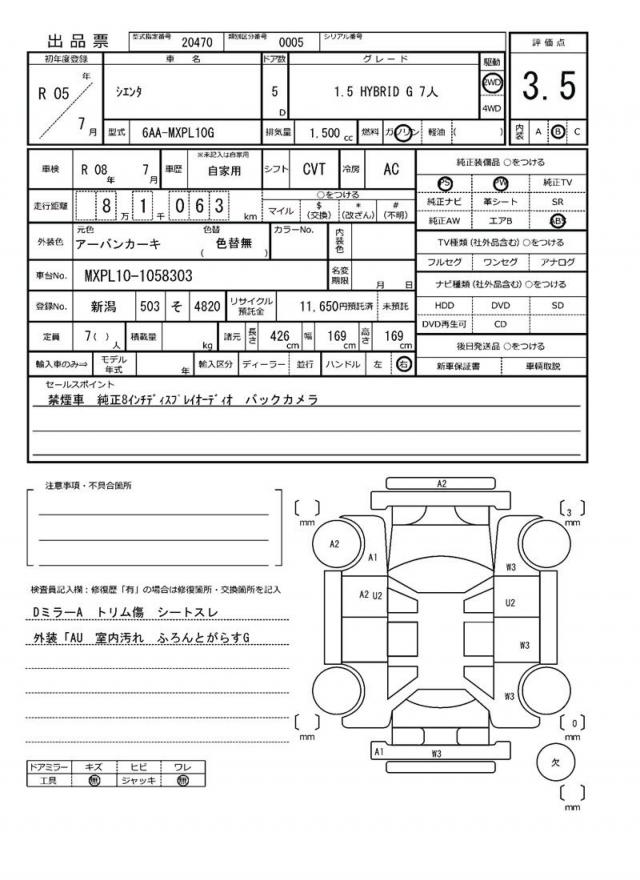 出品票
型式指定番号 20470 類別区分番号 0005 シリアル番号
初年度登録 車名 ドア数 グレード 駆動 評価点
R 05 年 7 月
シエンタ
5 D
1.5 HYBRID G 7人
2WD
4WD
3.5
型式 6AA-MXPL10G 排気量 1,500 cc 燃料 ガソリン 軽油 ( )
内装 A B C
車検 R 08 年 7 月 車歴 ※未記入は自家用 自家用 シフト CVT 冷房 AC
走行距離 8 万 1 千 0 6 3 km
○をつける
マイル $ (交換) * (改ざん) # (不明)
外装色 元色 アーバンカーキ 色替 ( 色替無 ) カラーNo. 内装色
車台No. MXPL10-1058303 名変期限 月 日
登録No. 新潟 503 そ 4820 リサイクル預託金 11,650円預託済 未預託
定員 7( )人 積載量 kg 諸元 長さ 426 cm 幅 169 cm 高さ 169 cm
輸入車のみ⇒ モデル年式 年 輸入区分 ディーラー 並行 ハンドル 左 右
純正装備品 ○をつける
PS PW 純正TV
純正ナビ 革シート SR
純正AW エアB ABS
TV種類(社外品含む)○をつける
フルセグ ワンセグ アナログ
ナビ種類(社外品含む)○をつける
HDD DVD SD
DVD再生可 CD
後日発送品 ○をつける
新車保証書 車輌取説
セールスポイント
禁煙車 純正8インチディスプレイオーディオ バックカメラ
注意事項・不具合箇所
検査員記入欄:修復歴「有」の場合は修復箇所・交換箇所を記入
DミラーA トリム傷 シートスレ
外装「AU 室内汚れ ふろんとがらすG
ドアミラー キズ ヒビ ワレ
工具 無 ジャッキ 無
A2
[ ] mm
[ 3 ] mm
A2
A1
W3
A2 U2
U2
W3
W3
[ ] mm
[ 0 ] mm
A1
W3
欠
[ ] mm